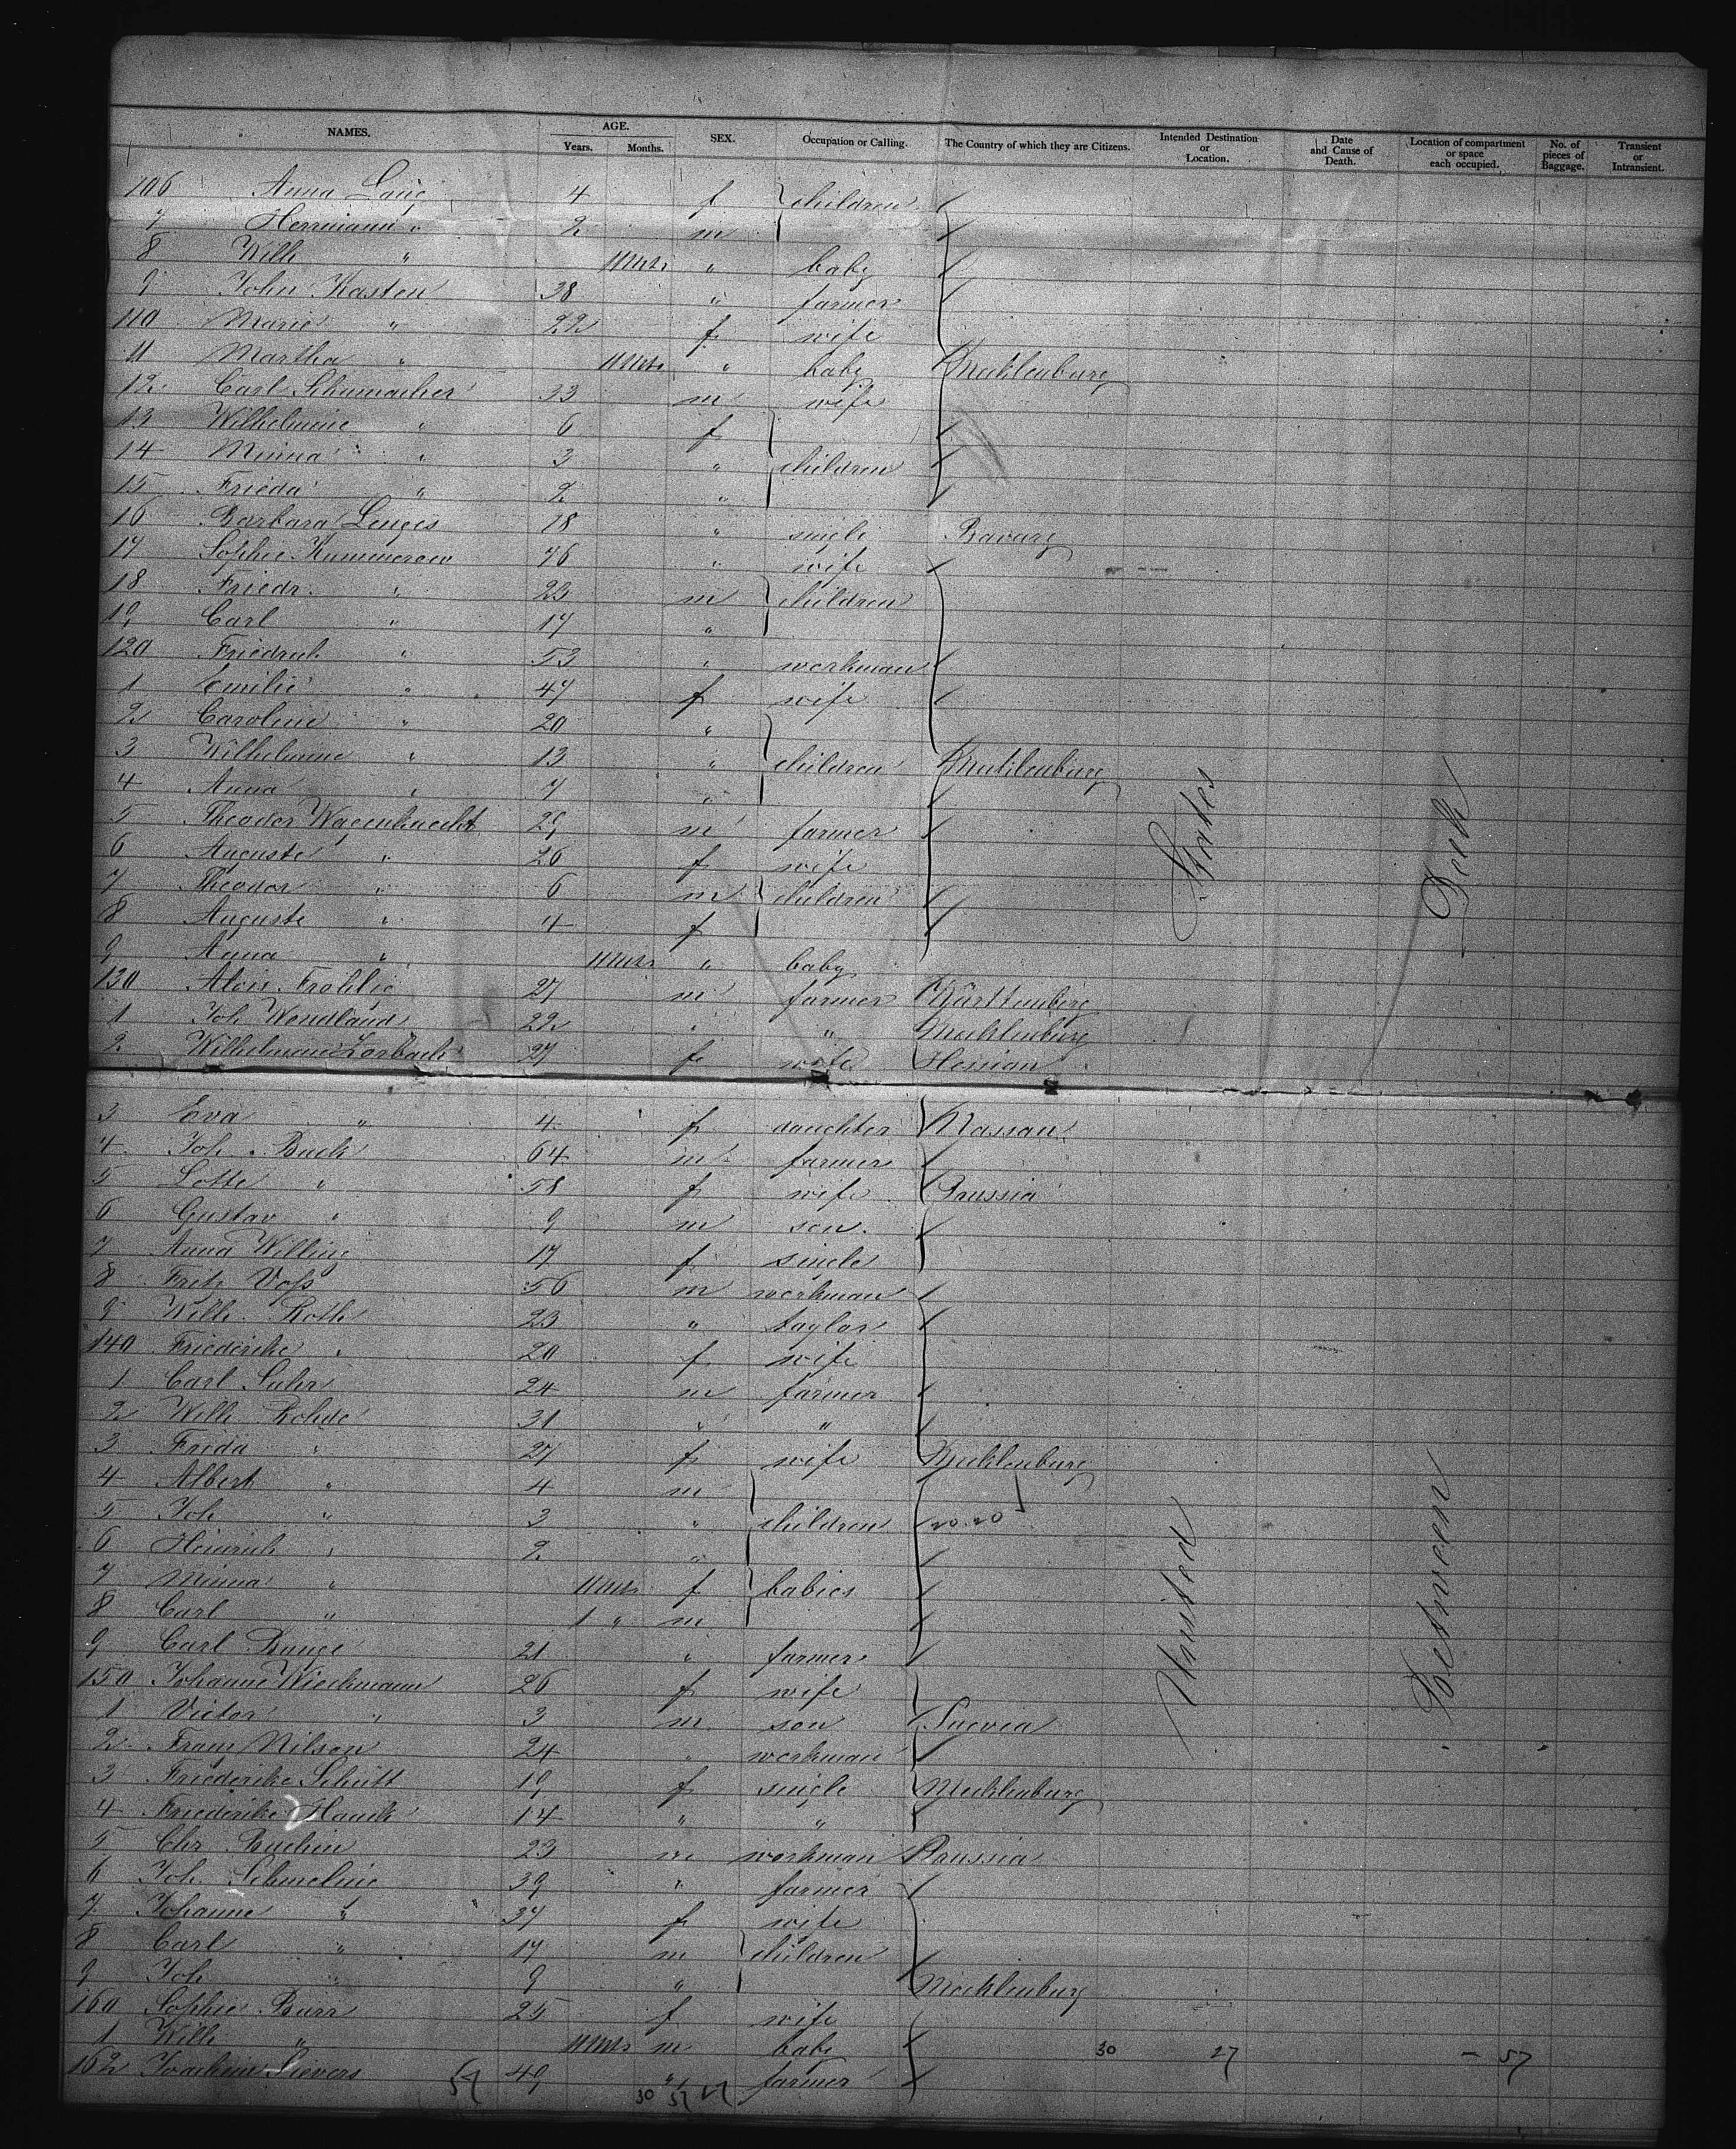 NAMES. AGE. Years. Months. SEX. Occupation or Calling. The Country of which they are Citizens. Intended Destination or Location. Date and Cause of Death. Location of compartment or space each occupied. No. of pieces of Baggage. Transient or Intransient.
106 Anna 4 f children
7 Herrmann " 2 m
8 Wilh " 11 Mts " baby
9 John Kasten 38 " farmer
110 Marie " 22 f wife
11 Martha " 11 Mts " baby Mecklenburg
12 Carl Schumacher 33 m wife
13 Wilhelmine " 6 f
14 Minna " 3 " children
15 Frieda " 2 "
16 Barbara 18 " single Bavary
17 Sophie Kummerow 76 " wife
18 Friedr. " 23 m children
19 Carl " 17 "
120 Friedrich " 53 " workman
1 Emilie " 47 f wife
2 Caroline " 20 "
3 Wilhelmine " 13 " children Mecklenburg
4 Anna " 7 "
5 Theodor Wagenknecht 29 m farmer
6 Auguste " 26 f wife
7 Theodor " 6 m children
8 Auguste " 4 f
9 Anna " 11 Mts " baby
130 Alois Frohlic 27 m farmer Württemberg
1 Joh Wendland 22 " " Mecklenburg
2 Wilhelmine Lorbach 27 f wife Hessian
3 Eva " 4 f daughter Nassau
4 Joh. Buck 64 m farmer
5 Lotte " 58 f wife Prussia
6 Gustav " 9 m son
7 Anna Willing 17 f single
8 Fritz Voss 56 m workman
9 Wilh. Roth 23 " taylor
140 Friederike " 20 f wife
1 Carl Suhr 24 m farmer
2 Wilh. Rohde 31 " "
3 Frida " 27 f wife Mecklenburg
4 Albert " 4 m
5 Joh " 3 " children
6 Heinrich " 2 "
7 Minna " 11 Mts f babies
8 Carl " 1 " m
9 Carl Bunge 21 " farmer
150 Johanne Wiechmann 26 f wife
1 Victor " 3 m son Suevea
2 Franz Nilson 24 " workman
3 Friederike Schütt 19 f single Mecklenburg
4 Friederike Hauck 14 " "
5 Chr. Buchin 23 m workman Prussia
6 Joh. Schmeling 39 " farmer
7 Johanne " 37 f wife
8 Carl " 17 m children
9 Joh " 9 " Mecklenburg
160 Sophie Burr 25 f wife
1 Wilh " 11 Mts m baby 30 27 - 57
162 Joachim Sievers 57 49 " farmer
30 57
United States
Between Deck